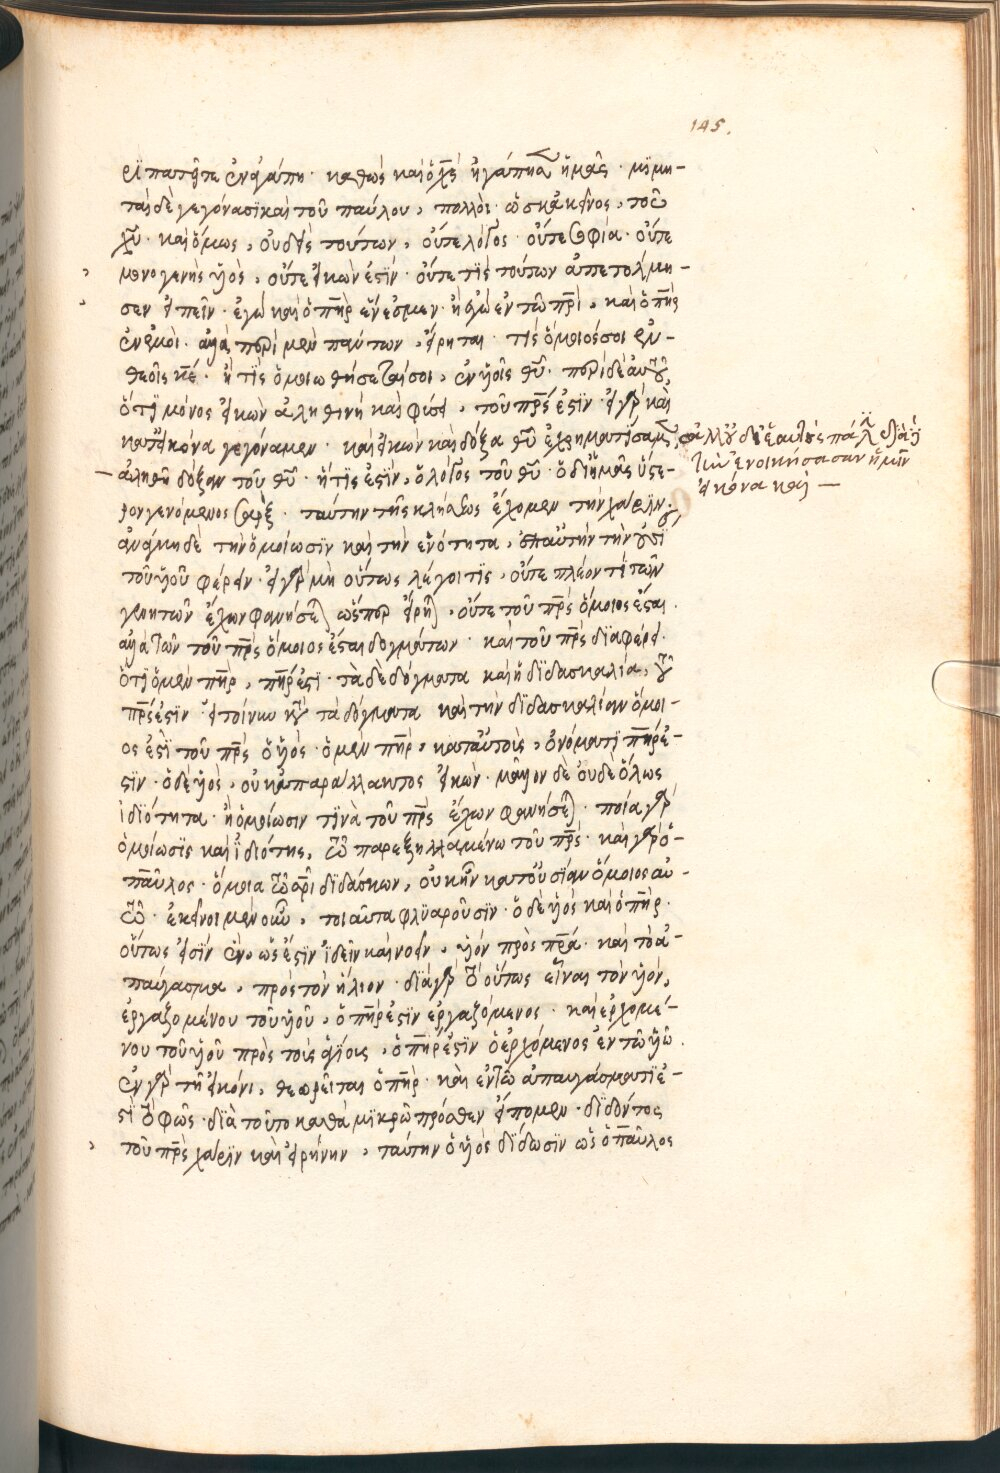 145.
πατεῖτε ἐν ἀγάπη· καθὼς καὶ ὁ χς ἠγάπησεν ἡμᾶς· μιμη-
ταὶ δὲ γεγόνασι καὶ τοῦ παύλου, πολλοὶ· ὡς κἀκεῖνος, τοῦ
χυ· καὶ ὅμως, οὐδεὶς τούτων, οὔτε λόγος· οὔτε σοφία· οὔτε
μονογενὴς υἱὸς, οὔτε εἰκών ἐστιν· οὔτε τίς τούτων ἀπετόλμη-
σεν εἰπεῖν· ἐγὼ καὶ ὁ πηρ ἕν ἐσμεν· ἢ ἐγὼ ἐν τῶ πρι, καὶ ὁ πηρ
ἐν ἐμοὶ· ἀλλὰ περὶ μὲν πάντων, εἴρηται· τίς ὅμοιός σοι ἐν
θεοῖς κε· ἢ τίς ὁμοιωθήσεται σοι, ἐν υἱοῖς θυ· περὶ δὲ αὐτοῦ,
ὅτι μόνος εἰκὼν ἀληθινὴ καὶ φύσει, τοῦ πρς ἐστιν· εἰ γὰρ καὶ
κατ' εἰκόνα γεγόναμεν· καὶ εἰκὼν καὶ δόξα θυ ἐχρηματίσαμεν,
ἀλλ' οὐ δι' ἑαυτοὺς πάλιν ἀλλὰ διὰ
τὴν ἐνοικήσασαν ἡμῖν
εἰκόνα καὶ
ἀληθῆ δόξαν τοῦ θυ· ἥτις ἐστὶν, ὁ λόγος τοῦ θυ· ὁ δι' ἡμᾶς ὕστε-
ρον γενόμενος σαρξ· ταύτην τῆς κλήσεως ἔχομεν τὴν χάριν·
ἀνάγκη δὲ τὴν ὁμοίωσιν καὶ τὴν ἑνότητα, αὐτὴν τὴν οὐσί
τοῦ υἱοῦ φέρειν· εἰ γὰρ μὴ οὕτως λέγοι τις, οὔτε πλέον τι τῶν
γενητῶν ἔχων φανήσεται ὥσπερ εἴρηται, οὔτε τοῦ πρς ὅμοιος ἔσται·
ἀλλὰ τῶν τοῦ πρς ὅμοιος ἔσται δογμάτων· καὶ τοῦ πρς διαφέρει·
ὅτι ὁ μὲν πηρ, πηρ ἐστι· τὰ δὲ δόγματα καὶ ἡ διδασκαλία, τοῦ
πρς ἐστιν· εἰ τοίνυν κατὰ τὰ δόγματα καὶ τὴν διδασκαλίαν ὅμοι-
ος ἐστὶ τοῦ πρς ὁ υἱὸς· ὁ μὲν πηρ, κατ' αὐτοὺς, ὀνόματι πηρ ἐ-
στιν· ὁ δὲ υἱὸς, οὐκ ἀπαράλλακτος εἰκών· μᾶλλον δὲ οὐδὲ ὅλως
ἰδιότητα· ἢ ὁμοίωσιν τινὰ τοῦ πρς ἔχων φανήσεται· ποία γὰρ
ὁμοίωσις καὶ ἰδιότης, τῶ παρεξηλλαμένω τοῦ πρς· καὶ γὰρ ὁ
παῦλος· ὅμοια τῶ σρι διδάσκων, οὐκ ἦν κατ' οὐσίαν ὅμοιος αὐ-
τῶ· ἐκεῖνοι μὲν οὖν, τοιαῦτα φλυαροῦσιν· ὁ δὲ υἱὸς καὶ ὁ πηρ·
οὕτως εἰσὶν ἓν, ὡς ἔστιν ἰδεῖν καὶ νοεῖν, υἱόν πρὸς πρα· καὶ τὸ ἀ-
παύγασμα, πρὸς τὸν ἥλιον· διὰ γὰρ τὸ οὕτως εἶναι τὸν υἱὸν,
ἐργαζομένου τοῦ υἱοῦ, ὁ πηρ ἐστιν ἐργαζόμενος· καὶ ἐρχομέ-
νου τοῦ υἱοῦ πρὸς τοὺς ἁγίους, ὁ πηρ ἐστιν ὁ ἐρχόμενος ἐν τῶ υἱῶ.
ἐν γὰρ τῆ εἰκόνι, θεωρεῖται ὁ πηρ· καὶ ἐν τῶ ἀπαυγάσματι ἐ-
στὶ τὸ φῶς· διὰ τοῦτο καθὰ μικρῶ πρόσθεν εἴπομεν· διδόντος
τοῦ πρς χάριν καὶ εἰρήνην, ταύτην ὁ υἱὸς δίδωσιν ὡς ὁ παῦλος